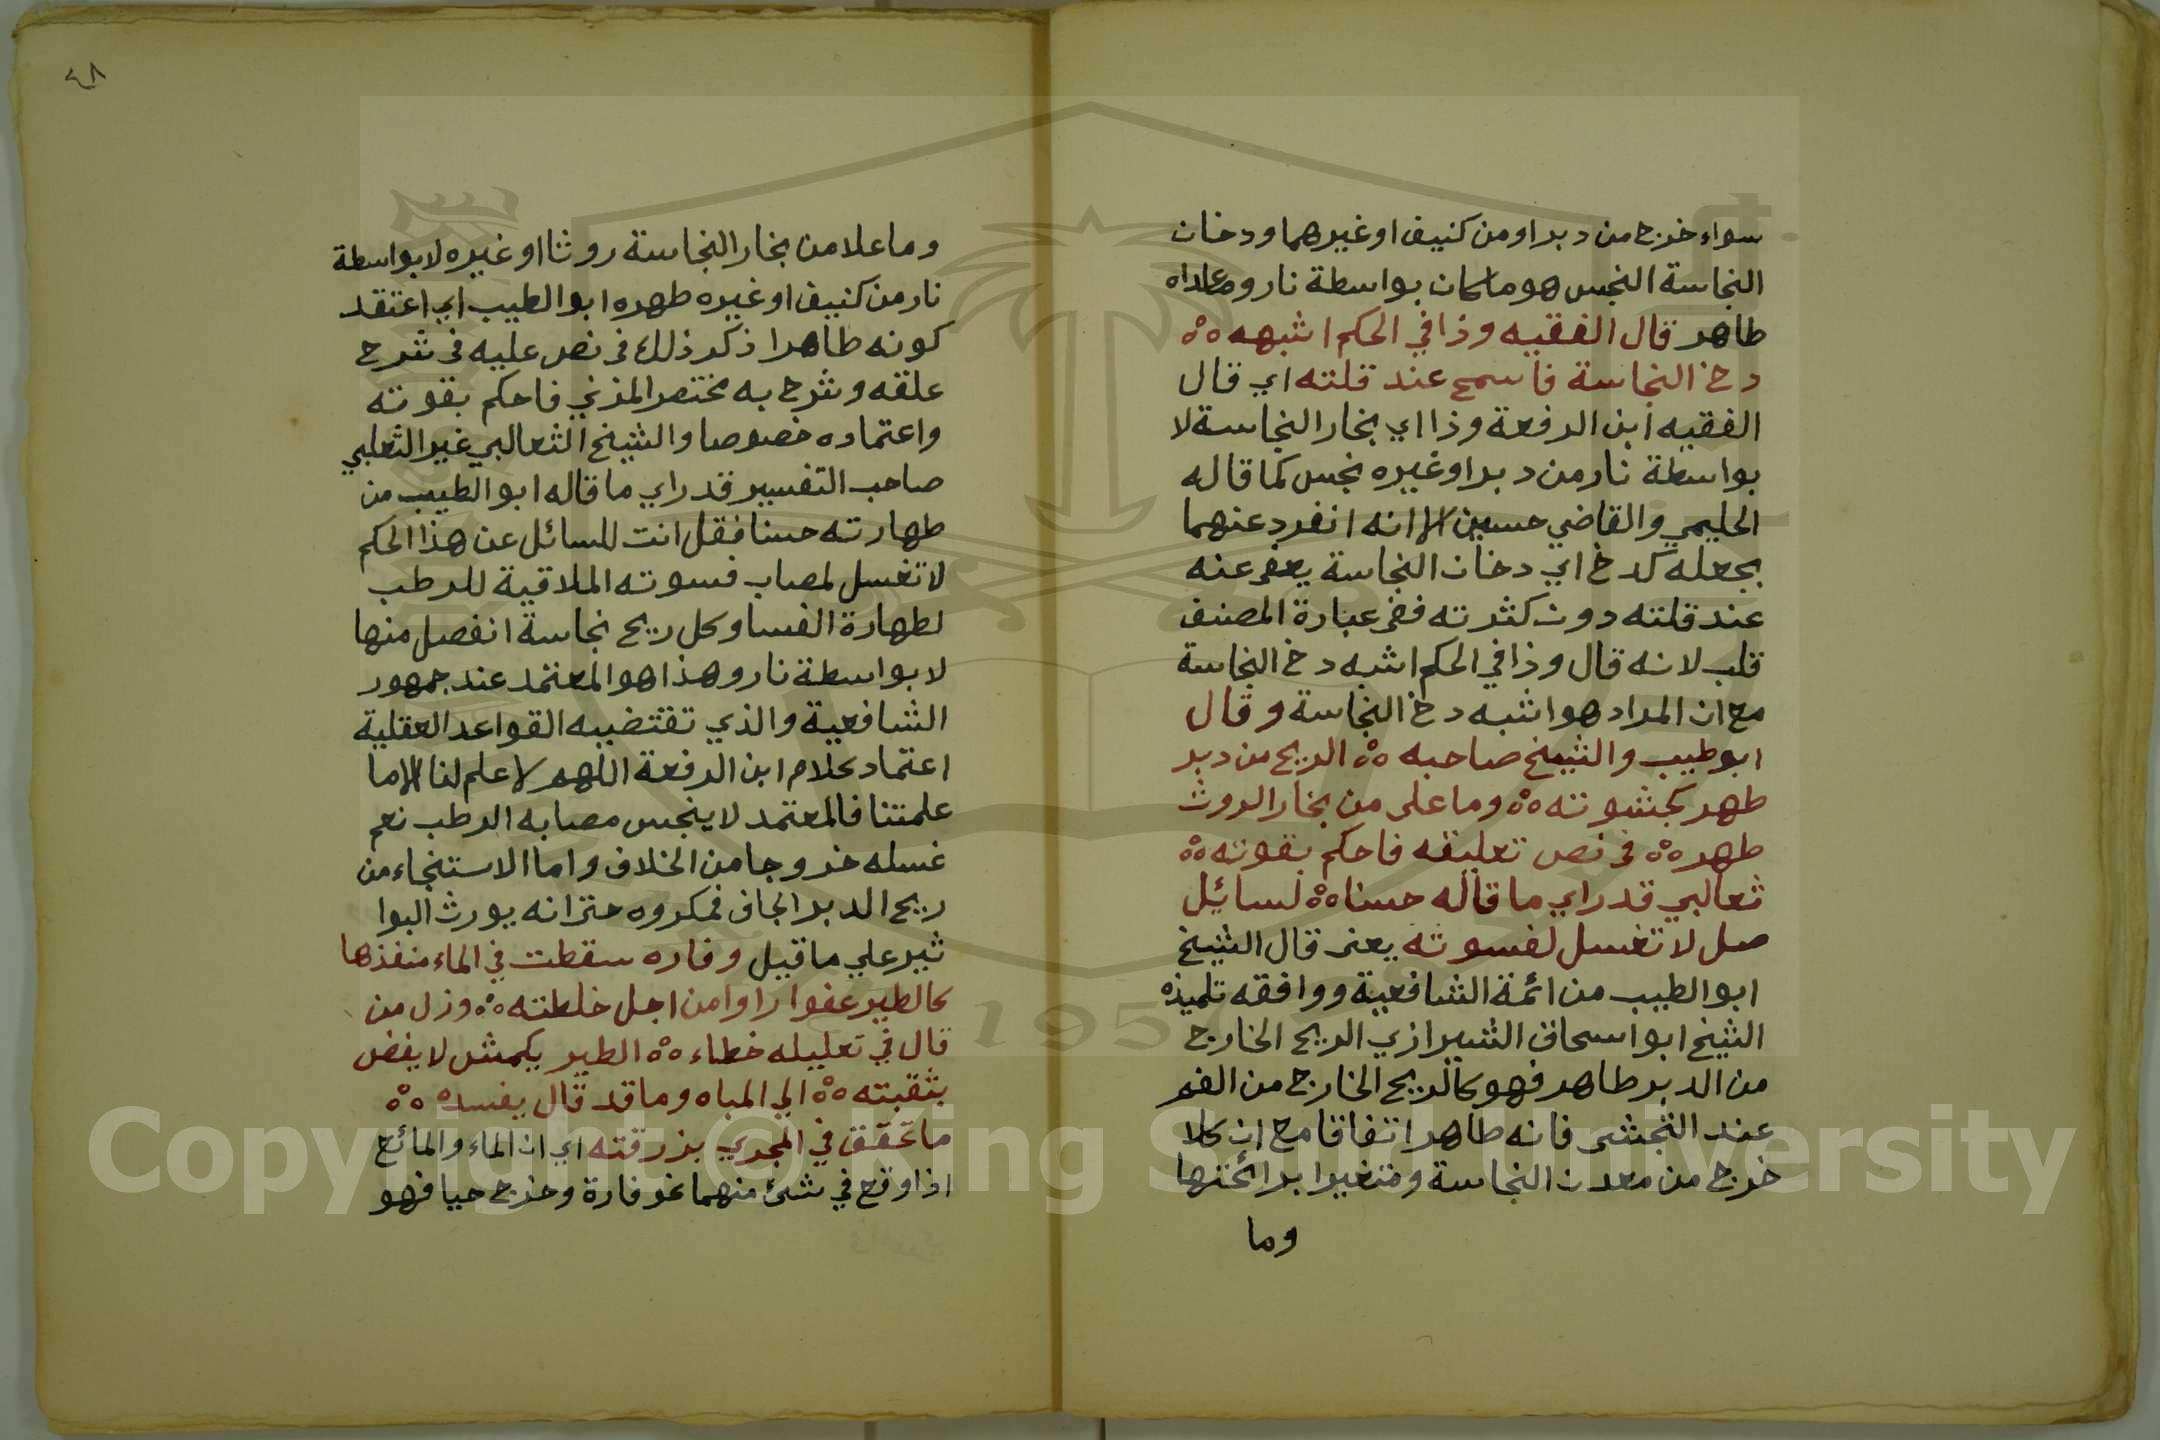 سواء خرج من دبر او من كنيف او غيرهما ودخان
النجاسة النجس هو ما كان بواسطة نار وما عداه
طاهر قال الفقيه وذا في الحكم اشبهه ه°ه
دخ النجاسة فاسمح عند قلته اي قال
الفقيه ابن الرفعة وذا اي بخار النجاسة لا
بواسطة نار من دبر او غيره نجس كما قاله
الحليمي والقاضي حسين الا انه انفرد عنهما
بجعله كدخ اي دخان النجاسة يعفى عنه
عند قلته دون كثرته ففي عبارة المصنف
قلب لانه قال وذا في الحكم اشبه دخ النجاسة
مع ان المراد هو اشبه دخ النجاسة وقال
ابو طيب والشيخ صاحبه ه°ه الريح من دبر
طهر كجشوته ه°ه وما على من بخار الروث
طهره ه°ه في نص تعليقه فاحكم بقوته ه°ه
ثعالبي قد راي ما قاله حسنا ه°ه لسائل
صل لا تغسل لفسوته يعني قال الشيخ
ابو الطيب من ائمة الشافعية ووافقه تلميذه
الشيخ ابو اسحاق الشيرازي الريح الخارج
من الدبر طاهر فهو كالريح الخارج من الفم
عند التجشى فانه طاهر اتفاقا مع ان كلا
خرج من معدن النجاسة ومتغيرا برائحتها
وما
٤٨
وما علا من بخار النجاسة روثا او غيره لا بواسطة
نار من كنيف او غيره طهره ابو الطيب اي اعتقد
كونه طاهرا ذكر ذلك في نص عليه في شرح
علقه وشرح به مختصر المزني فاحكم بقوته
واعتماده خصوصا والشيخ الثعالبي غير الثعلبي
صاحب التفسير قد راي ما قاله ابو الطيب من
طهارته حسنا فقل انت للسائل عن هذا الحكم
لا تغسل لمصاب فسوته الملاقية للرطب
لطهارة الفسا وكل ريح نجاسة انفصل منها
لا بواسطة نار وهذا هو المعتمد عند جمهور
الشافعية والذي تقتضيه القواعد العقلية
اعتماد كلام ابن الرفعة اللهم لا علم لنا الا ما
علمتنا فالمعتمد لا ينجس مصابه الرطب نعم
غسله خروجا من الخلاف واما الاستنجاء من
ريح الدبر الجاف فمكروه حتى انه يورث البوا
ثير علي ما قيل وفاره سقطت في الماء منفذها
كالطير عفوا راوا من اجل خلطته ه°ه وزل من
قال في تعليله خطاء ه°ه الطير يكمش لا يفض
بثقبته ه°ه الي المياه وما قد قال يفسده ه°ه
ما تحقق في المجري بزرقته اي ان الماء والمائع
اذا وقع في شئ منهما نحو فارة وخرج حيا فهو
Copyright © King Saud University
1957